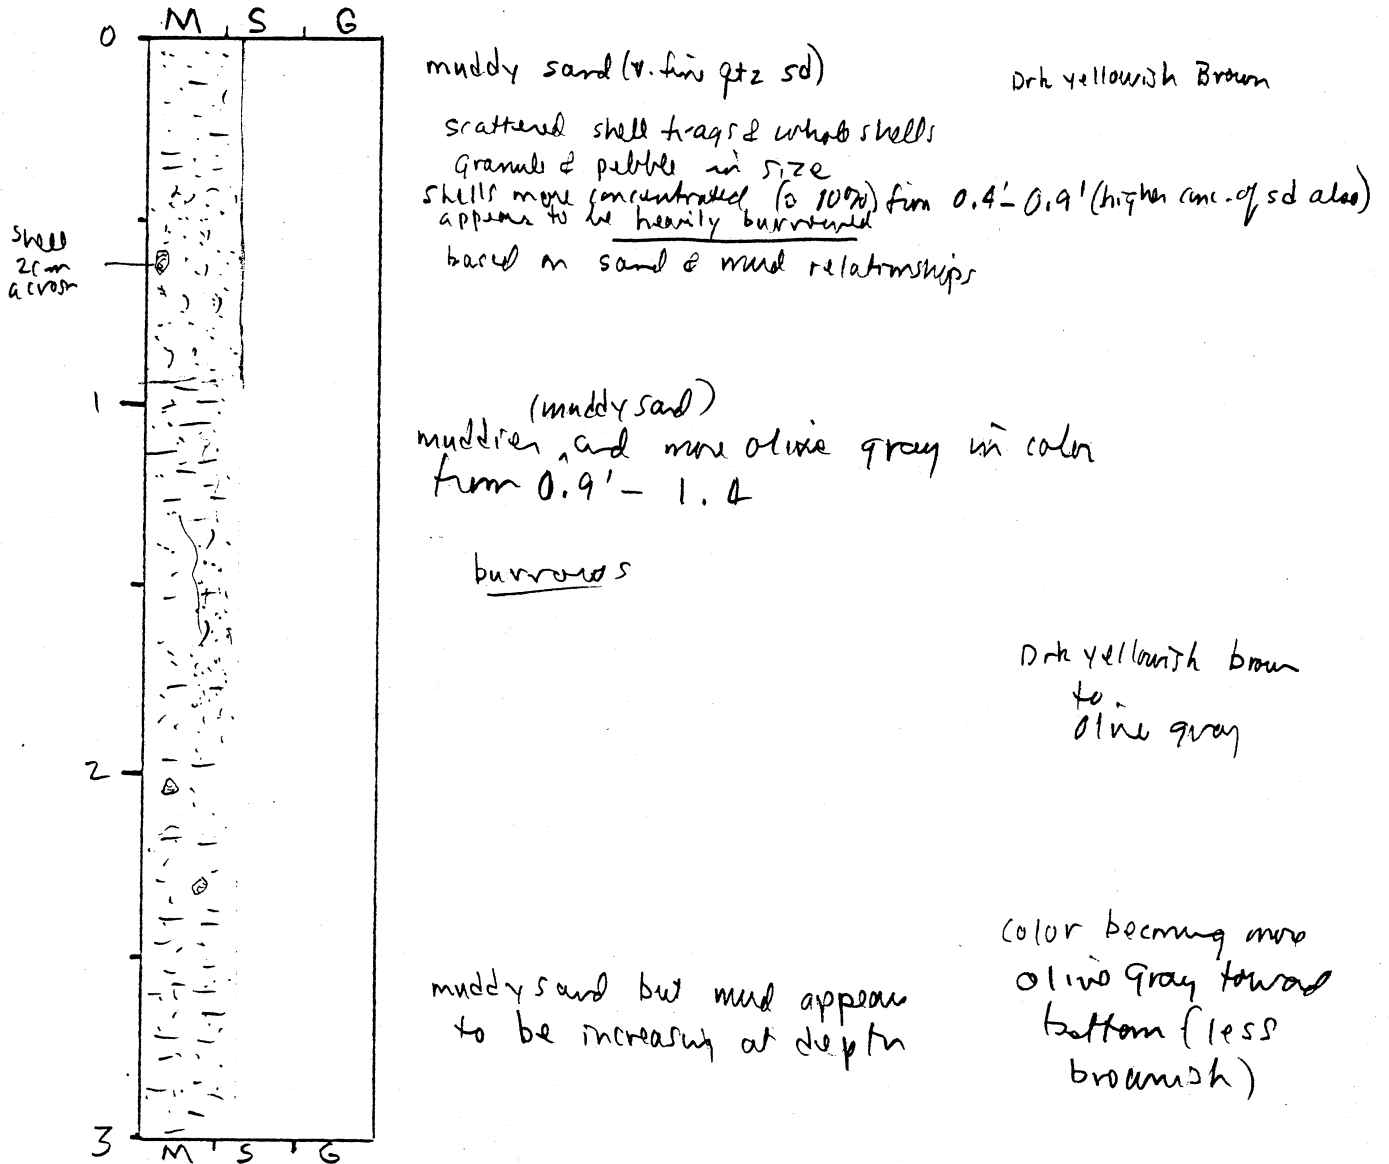 M S G
0
muddy sand (v. fine qtz sd)
Drk yellowish Brown
scattered shell frags & whole shells
Granule & pebble in size
shells more concentrated (≈ 10%) from 0.4'– 0.9' (higher conc. of sd also)
appears to be heavily burrowed
based on sand & mud relationships
shell
2cm
across
1
(muddy sand)
muddier ^ and more olive gray in color
from 0.9' – 1.4
burrows
Drk yellowish brown
to
olive gray
2
color becoming more
olive Gray toward
bottom (less
brownish)
muddy sand but mud appears
to be increasing at depth
3
M S G